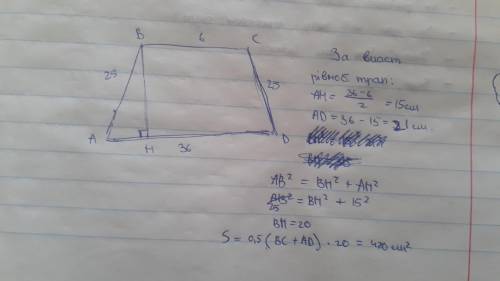 B 6 C
25 25
A H 36 D
За власт
рівноб трап:
AH = 36-6/2 = 15см
AD = 36 - 15 = 21см.
AB² = BH² + AH²
25² = BH² + 15²
BH = 20
S = 0,5(BC + AD) · 20 = 420 см²